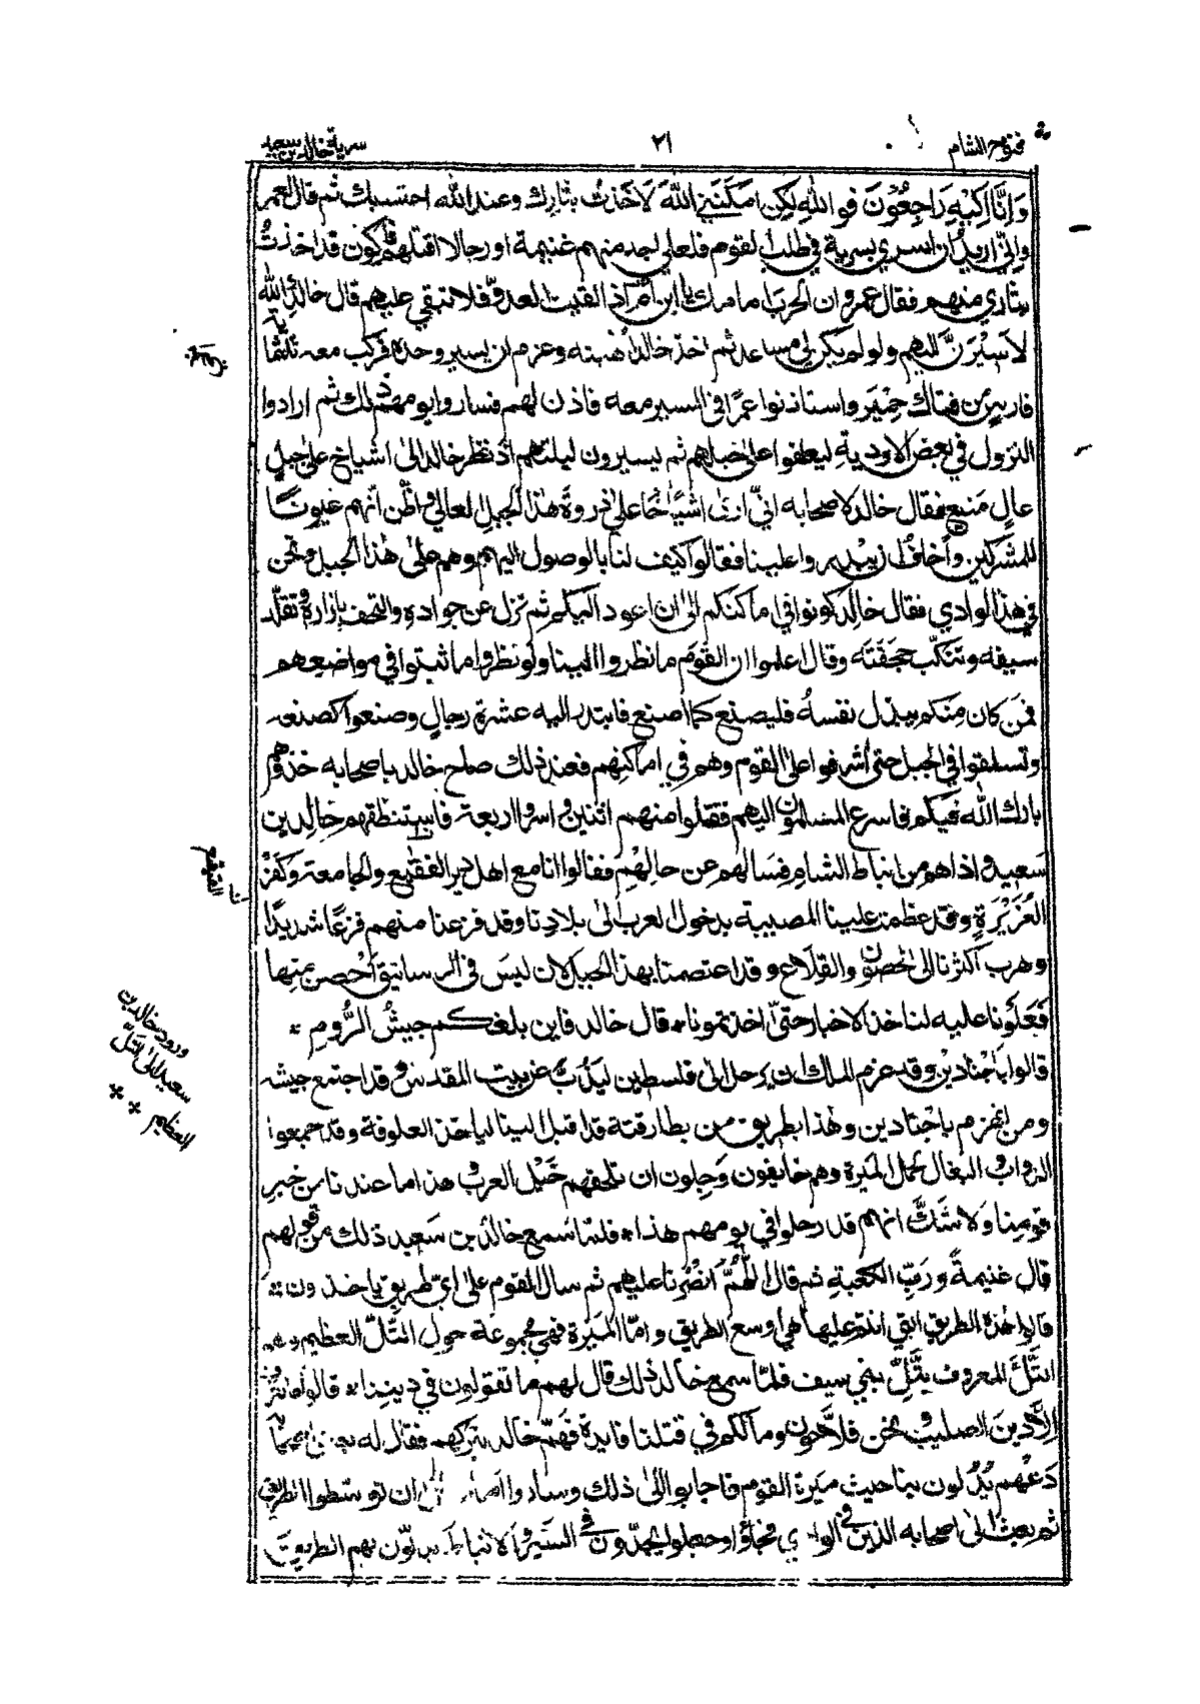 فتوح الشام
٢١
سرية خالد بن سعيد
وَاِنَّا اِلَيْهِ رَاجِعُوْنَ فو اللهِ لئن امكَنَنِي اللهُ لَاخذتُ بثارك وعند الله احتسبك ثم قال لعمر
واِنّي اريد ان اسري بسرية في طلب القوم فلعلي اجد منهم غنيمة او رجالا اقتلهم فاكون قد اخذتُ
بثاري منهم فقال عمرو ان الحرب امامك يا ابن ام اذا لقيت العدو فلا تبقي عليهم قال خالد والله
لاَسِيْرَنَّ اليهم ولو لم يكن لي مساعد ثم اخذ خالد اُهبته وعزم ان يسير وحده فركب معه ثلثمائة
فارس من فتاك حِمْيَر واستاذنوا عمرًا في المسير معه فاذن لهم فساروا يومهم ذلك ثم ارادوا
النزول في بعض الاودية ليعلفوا على خيلهم ثم يسيرون ليلتهم اذ نظر خالد الى اشياخ على جبلٍ
عالٍ مَنيع فقال خالد لاصحابه انّي ارىٰ اشْيَاخًا على ذروة هٰذا الجبلِ العالي واظن انّهم عيونًا
للمشركين وأخاف ان يدبروا علينا فقالوا كيف لنا بالوصول اليهم وهم على هٰذا الجبل ونحن
في هذا الوادي فقال خالد كونوا في ماكنكم الىٰ ان اعود اليكم ثم نزل عن جواده والتحف بازاره وتقلّد
سيفه وتنكّب حجَفَتَه وقال اعلموا ان القوم ما نظروا الينا ولو نظروا ما ثبتوا في مواضعهم
فمن كان منكم يبذل نفسهُ فليصنع كما اصنع فابتدر اليه عشرة رجالٍ وصنعوا كصنعه
وتسلقوا في الجبل حتى أشرفوا على القوم وهم في اماكنِهم فعند ذلك صاح خالد باصحابه خذوهم
بارك الله فيكم فاسرع المسلمون اليهم فقتلوا منهم اثنين واسروا اربعة فاستنطقهم خالد بن
سَعيد واذا هم من انباط الشام فسالهم عن حالِهِم فقالوا انا مع اهل دير الفقيع والجامعة وكَفرْ
العَزِيْرَةِ وقد عظمت علينا المصيبة بدخول العرب الىٰ بلادنا وقد فزعنا منهم فزعًا شديدًا
وهرب اكثرنا الى الحصون والقلاع وقد اعتصمنا بهذا الجبل لان ليسَ في الرساتيق احْصن مِنها
فَعَلَوْنا عليه لناخذ الاخبار حتىّ اخذتمونا * قال خالد فاين بلغكم جيشُ الرُّومِ *
قالوا باَجنادين وقد عزم الملك ان يرحل الى فلسطين ليَذُبَّ عن بيت المقدس وقد اجتمع جيشه
ومن انهزم باجنادين وهٰذا بطريق من بطارقته قد اقبل الينا لياخذ العلوفة وقد جمعوا
الدواب والبغال لحمل الميرة وهم خايفون وَجِلون ان تلحقهم خَيْل العرب هذا ما عندنا من خبرِ
قومِنا وَلا شكَّ انهم قد رحلوا في يومهم هذا * فلمّا سمع خالد بن سَعيد ذلك من قولهم
قال غنيمةً ورَبِّ الكعبةِ ثم قال اللهُمَّ انصُرنا عليهم ثم سال القوم على ايّ طريق ياخذون *
قالوا هٰذه الطريق التي انتم عليها هي اوسع الطريق وامّا الميَرة فهي مجموعة حول التلّ العظيم وهو
التَّلَّ المعروف بتَلِّ بني سيف فلمّا سمع خالد ذلك قال لهم ما تقولون في ديننا * قالوا ما نعرف
الاّ دين الصليب ونحن فلاّحون وما لكم في قتلنا فايدة فَهَمَّ خالد بتركهم فقال له بعض اصحابه
دَعْهم يَدُلون بنا حيث ميَرة القوم فاجابوا الىٰ ذلك وساروا الى ان توسّطوا الطريق
ثم بعث الى اصحابه الذين في الوادي فجاؤا وجعلوا يجدّون في السَير والانباط يدلّون بهم الطريق
ورود خالد بن
سعيد الى التلّ
العظيم * *